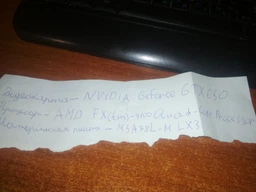 Видеокарта - NVIDIA Geforce GTX650
Процессор - AMD FX(tm)-4100 Quad-
Материнская плата - M5A78L-M LX3